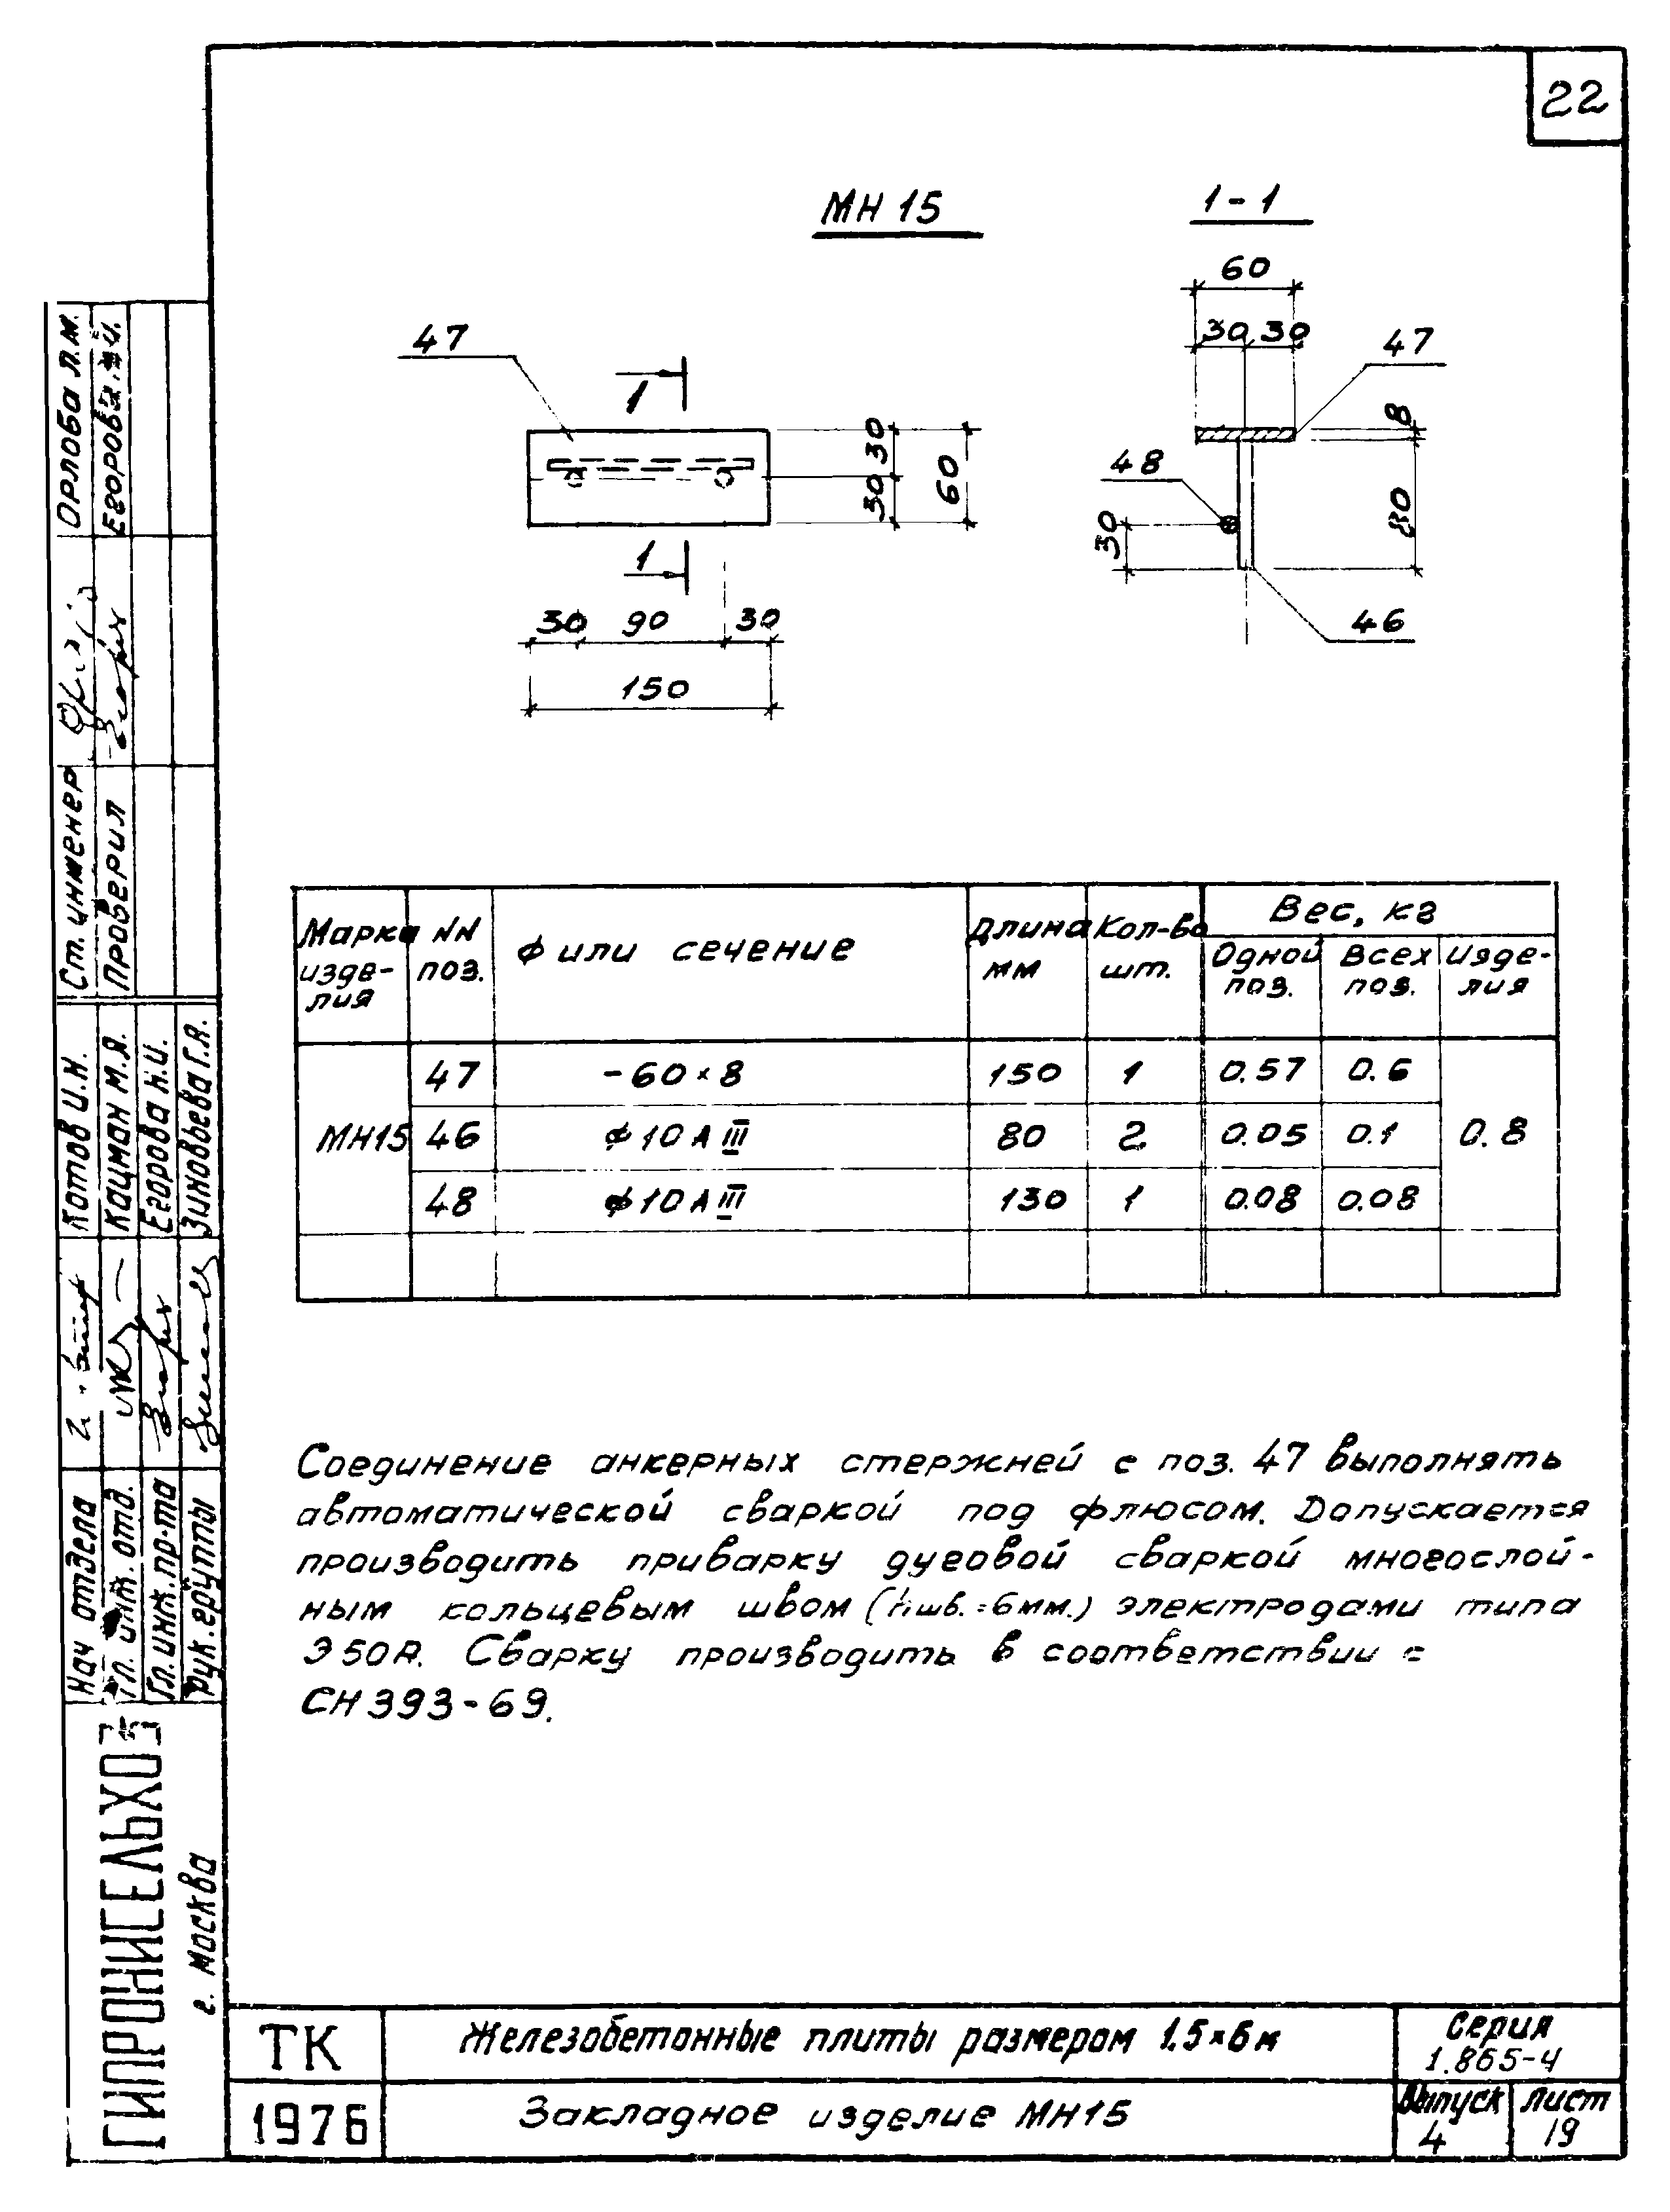 22
МН 15
1-1
60
30 30
47
8
48
80
30
46
47
1
30
30
60
1
30 90 30
150
Марка изделия
NN поз.
Ф или сечение
Длина мм
Кол-во шт.
Вес, кг
Одной поз.
Всех поз.
Изделия
47 -60×8 150 1 0.57 0.6
МН15 46 ф10АIII 80 2 0.05 0.1 0.8
48 ф10АIII 130 1 0.08 0.08
Соединение анкерных стержней с поз. 47 выполнять
автоматической сваркой под флюсом. Допускается
производить приварку дуговой сваркой многослой-
ным кольцевым швом (hшв.=6мм.) электродами типа
Э50А. Сварку производить в соответствии с
СН 393-69.
Ст. инженер Орлова Л.М.
Проверил Егорова Н.И.
Нач отдела Котов И.Н.
Гл. инж. отд. Кацман М.Я.
Гл. инж. пр-та Егорова Н.И.
Рук. группы Зиновьева Г.А.
ГИПРОНИСЕЛЬХОЗ
г. Москва
ТК
1976
Железобетонные плиты размером 1.5×6м
Закладное изделие МН15
Серия
1.865-4
Выпуск
4
Лист
19